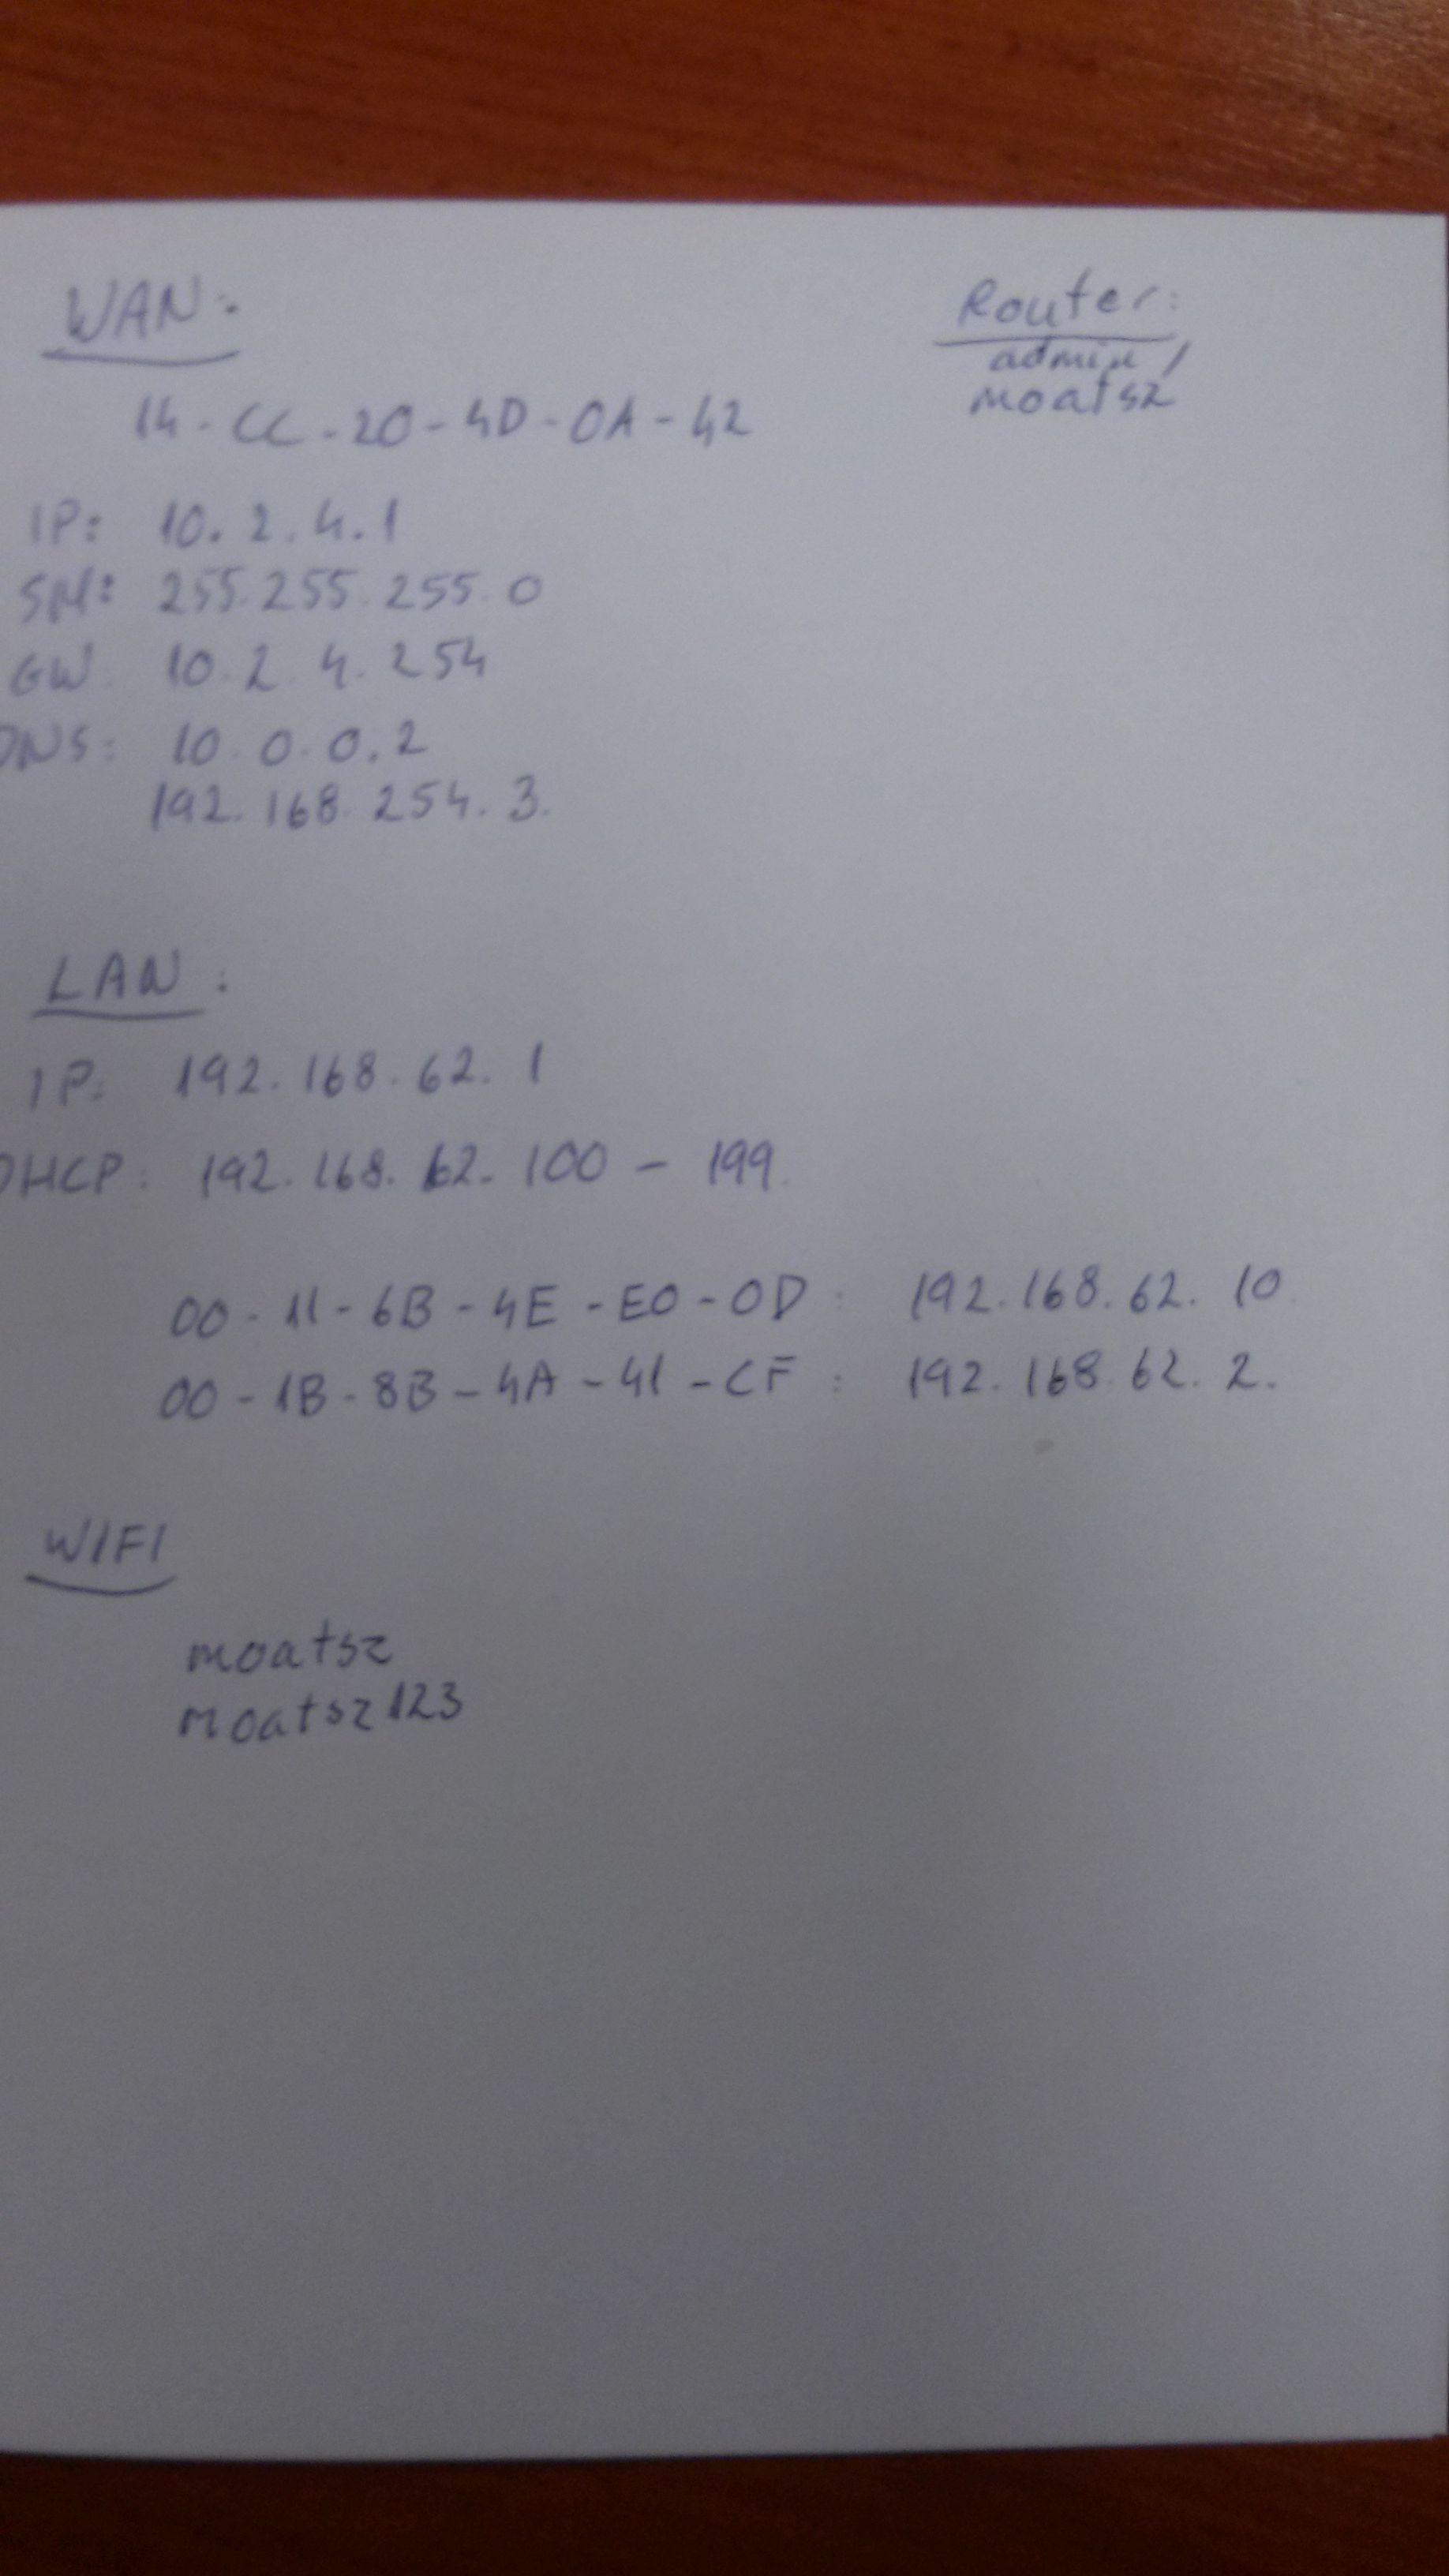 WAN:
14-CC-20-4D-0A-42
IP: 10.2.4.1
SM: 255.255.255.0
GW 10.2.4.254
DNS: 10.0.0.2
192.168.254.3.
Router:
admin/
moatsz
LAN:
IP: 192.168.62.1
DHCP: 192.168.62.100 - 199.
00-11-6B-4E-E0-0D: 192.168.62.10
00-1B-8B-4A-41-CF: 192.168.62.2.
WIFI
moatsz
moatsz123